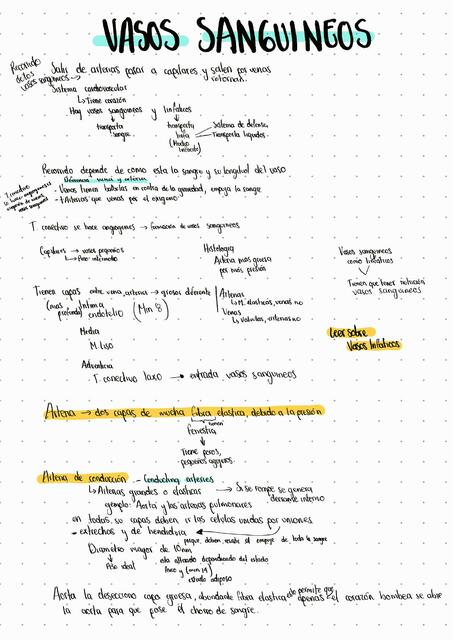 VASOS SANGUINEOS
Recorrido de los vasos sanguineos →
Salir de arterias pasar a capilares y salen por venas
retornan.
Sistema cardiovascular
↳ Tiene corazón
Hay vasos sanguineos y linfaticos
↓ transporta sangre.
↓ transporta linfa (Medio
Sistema de defensa
Transporta liquidos.
Recorrido depende de como esta la sangre y su longitud del vaso
Diferencia venas y arterias
- Venas tienen batallas en contra de la gravedad, empuja la sangre
Arterias que venas por el oxigeno
T. conectivo
se hace angiogenesis
vasos sanguineos
T. conectivo se hace angiogenes → formación de vasos sanguineos
Capilares → vasos pequeños
↳ Paso intermedio
Histologia
Arteria mas gruesa
por más presión
Vasos sanguineos
como linfaticos
Tienen que tener nutrición
vasos sanguineos
Tienen capas entre vena, arteria → grosor diferente
(mas profunda) Intima
endotelio (Min 8)
Arterias
↳ M. elasticos, venas no
Venas
↳ Valvulas, arterias no
Media
M. liso
Adventicia
T. conectivo laxo → entrada vasos sanguineos
Leer sobre
Vasos linfaticos
Arteria → dos capas de mucha fibra elastica, debido a la presión
tienen
Fenestra
↓
Tiene poros,
pequeños agujeros.
Arteria de conducción - Conducting arteries
↳ Arterias grandes o elasticas → Si se rompe se genera
derrame interno
ejemplo: Aorta y las arterias pulmonares
en todas, su capas deben ir las celulas unidas por uniones
- estrechas y de hendidura
porque, deben resistir el empuje de toda la sangre
Diametro mayor de 10mm
↳ Aso ideal
ella alterado dependiendo del estado
fisico y (min 14)
estado adiposo
Aorta la disecciono capa gruesa, abundante fibra elastica ello permite que apenas el corazón bombea se abre
la aorta para que pase el chorro de sangre.